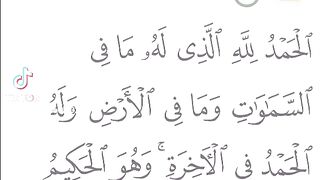 ٱلْحَمْدُ لِلَّهِ ٱلَّذِى لَهُۥ مَا فِى
ٱلسَّمَـٰوَٰتِ وَمَا فِى ٱلْأَرْضِ وَلَهُ
ٱلْحَمْدُ فِى ٱلْـَٔاخِرَةِ ۚ وَهُوَ ٱلْحَكِيمُ